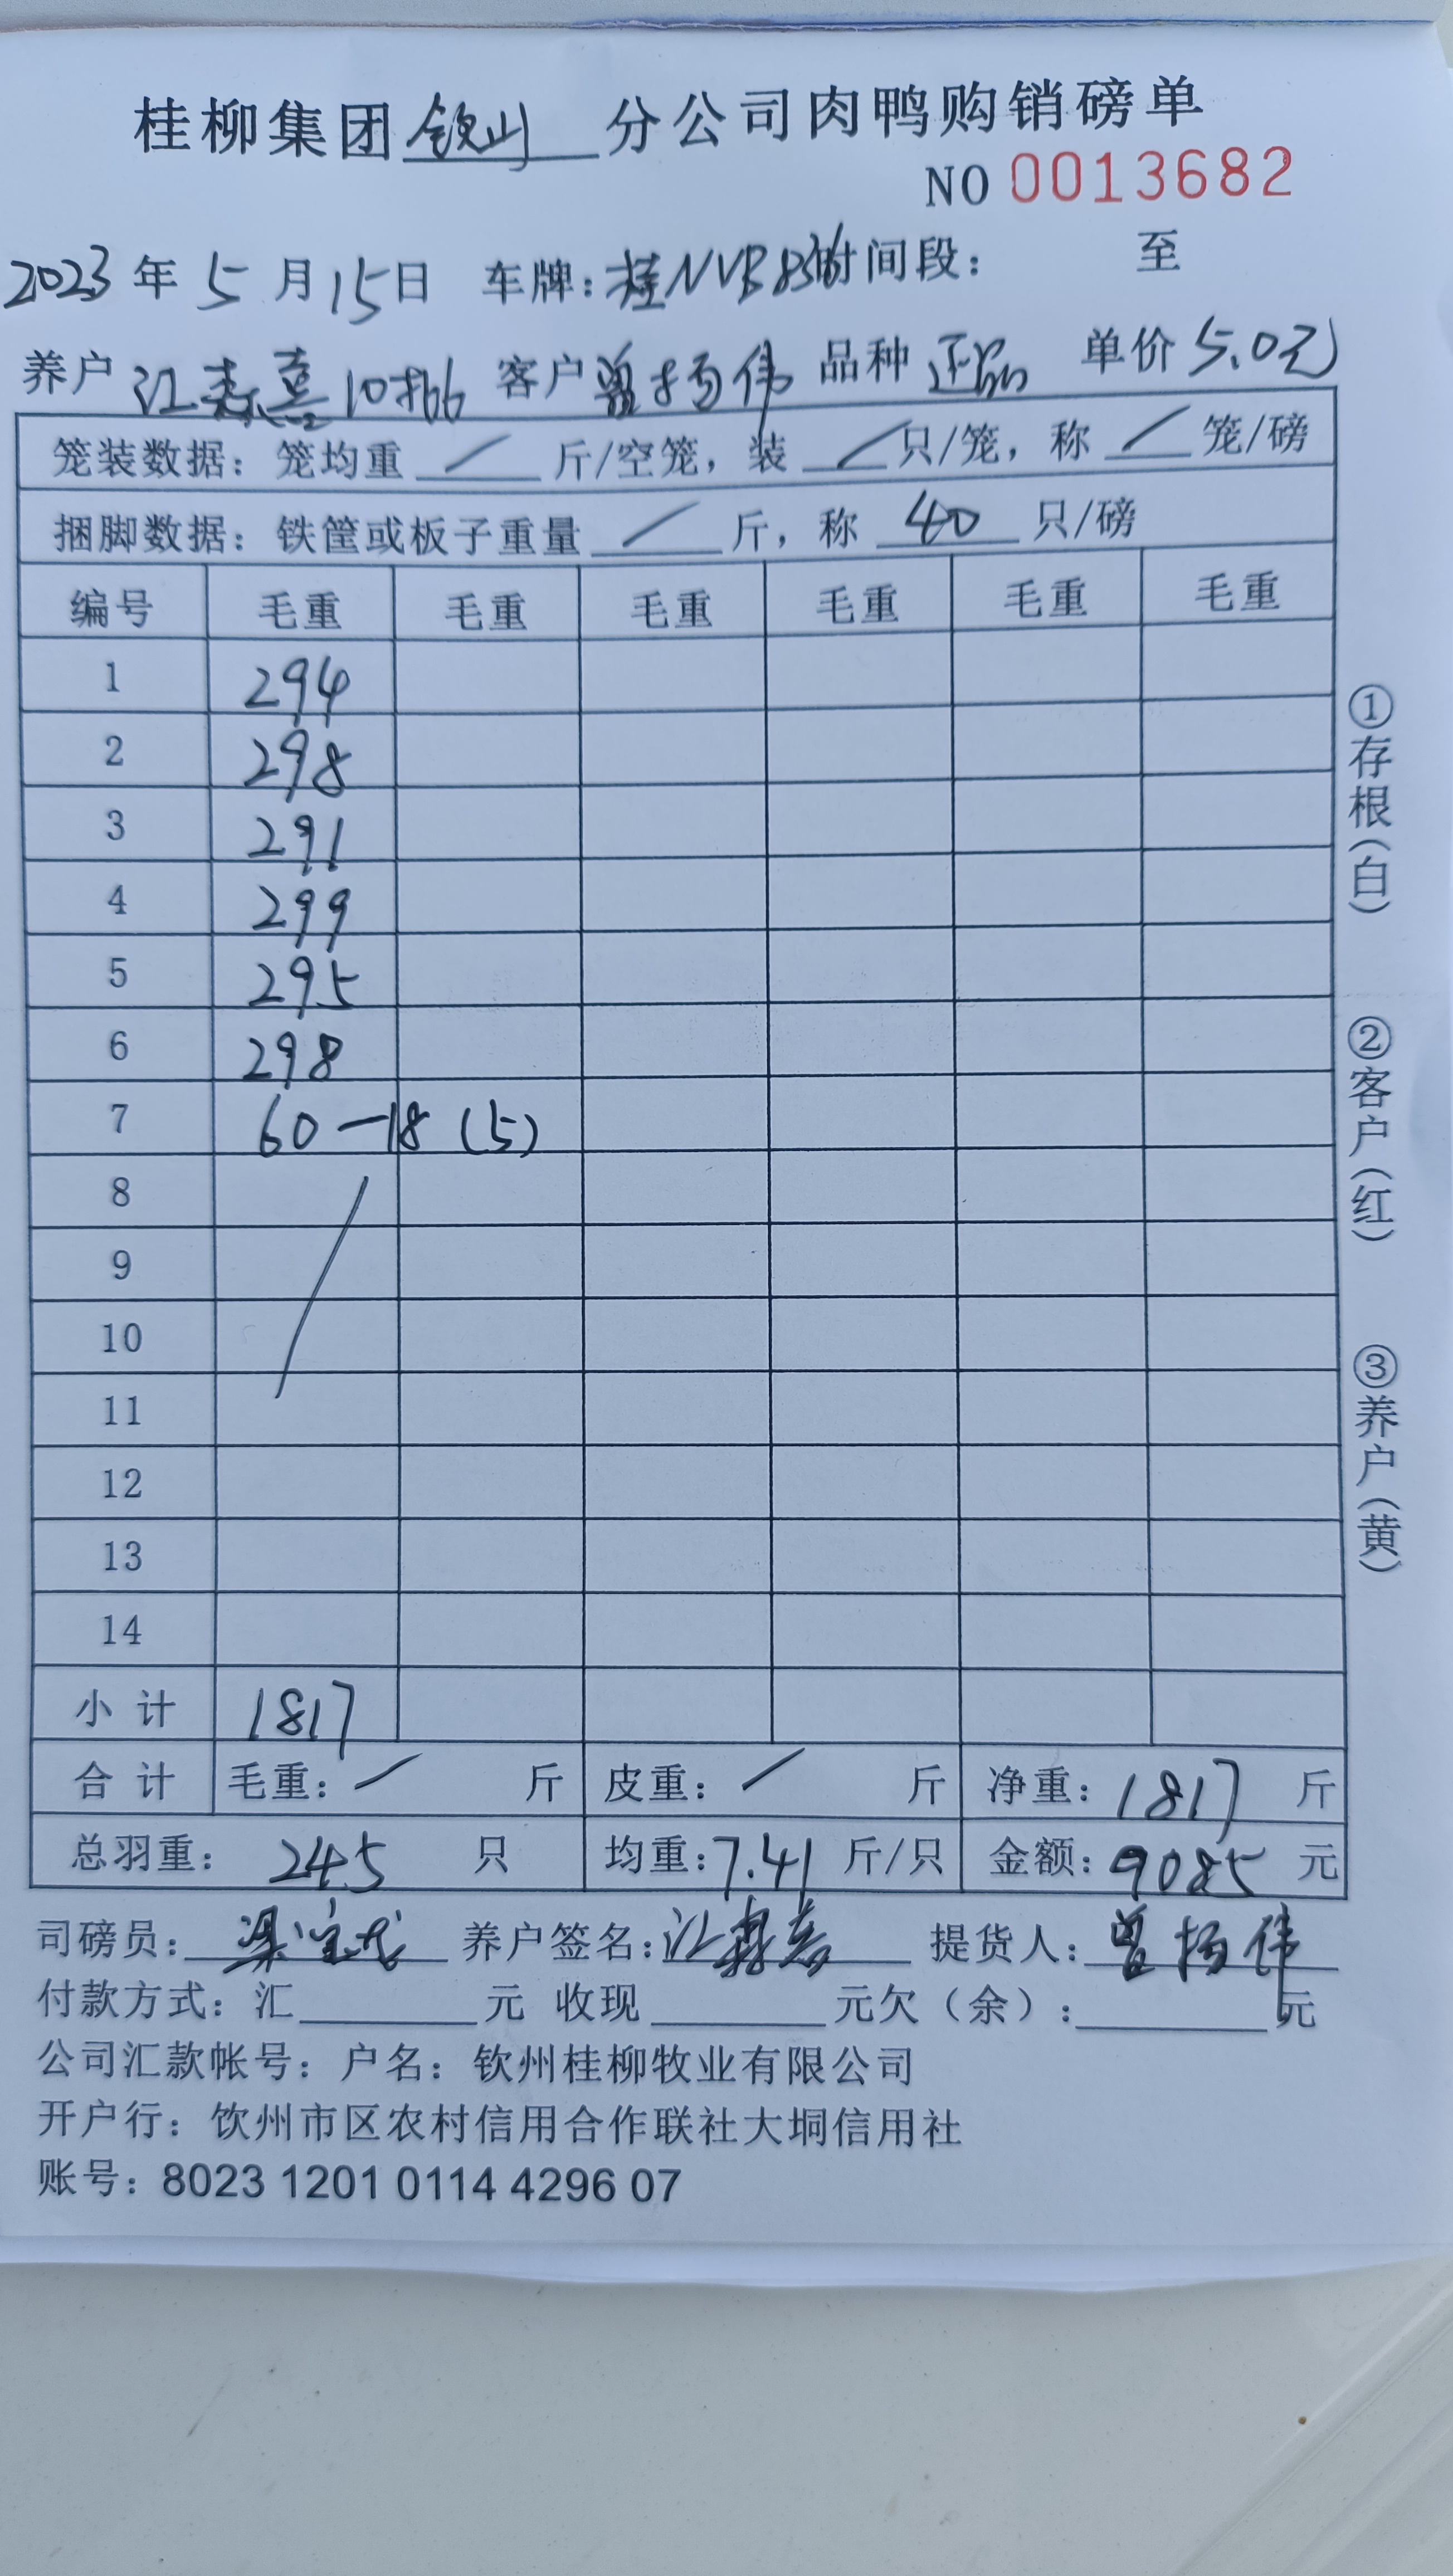 桂柳集团钦州分公司肉鸭购销磅单
NO 0013682
2023年5月15日 车牌:桂NVB 时间段: 至
养户 江 10批 客户 曾扬伟 品种 正品 单价 5.0元
笼装数据: 笼均重 / 斤/空笼, 装 / 只/笼, 称 / 笼/磅
捆脚数据: 铁筐或板子重量 / 斤, 称 40 只/磅
编号 毛重 毛重 毛重 毛重 毛重 毛重
1 294
2 298
3 291
4 299
5 295
6 298
7 60-18 (5)
8
9
10
11
12
13
14
小计 1817
合计 毛重: / 斤 皮重: / 斤 净重: 1817 斤
总羽重: 245 只 均重: 7.41 斤/只 金额: 9085 元
司磅员: 梁宝龙 养户签名: 江 提货人: 曾扬伟
付款方式: 汇 元 收现 元欠(余): 元
公司汇款帐号: 户名: 钦州桂柳牧业有限公司
开户行: 饮州市区农村信用合作联社大垌信用社
账号: 8023 1201 0114 4296 07
①存根(白)
②客户(红)
③养户(黄)